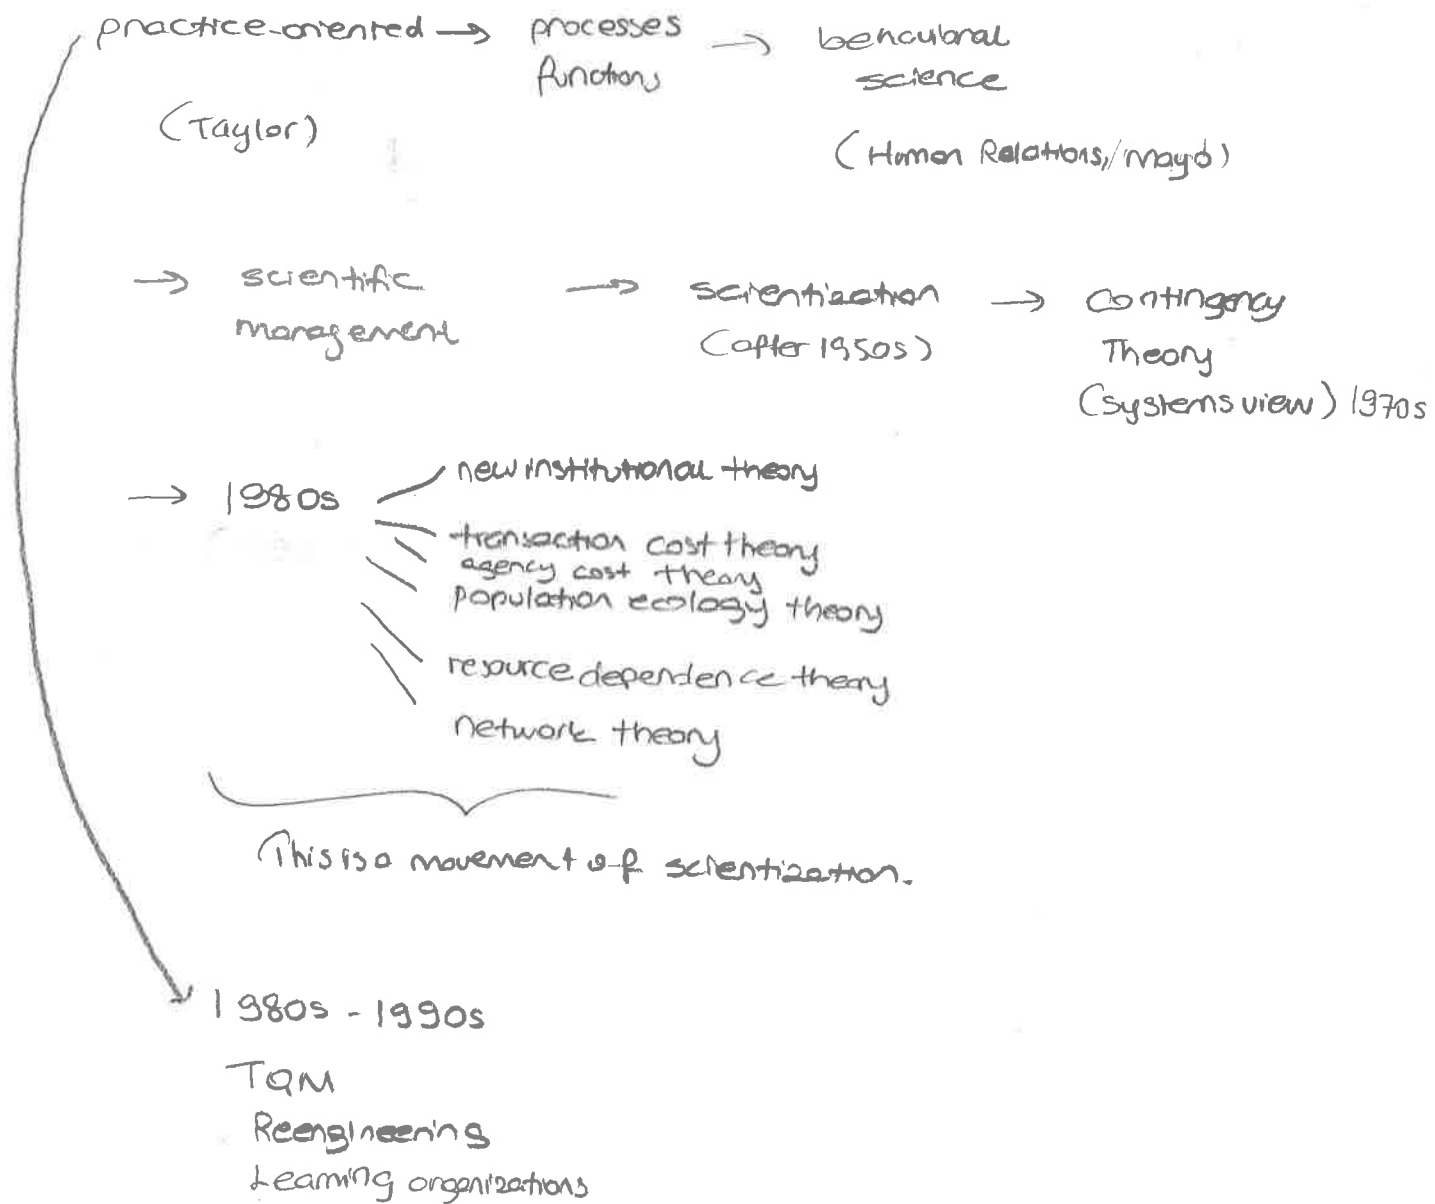 practice-oriented → processes → behavioral
functions science
(Taylor)
(Human Relations/Mayo)
→ scientific → scientization → contingency
management (after 1950s) Theory
(systems view) 1970s
→ 1980s
new institutional theory
transaction cost theory
agency cost theory
population ecology theory
resource dependence theory
network theory
This is a movement of scientization.
1980s - 1990s
TQM
Reengineering
Learning organizations